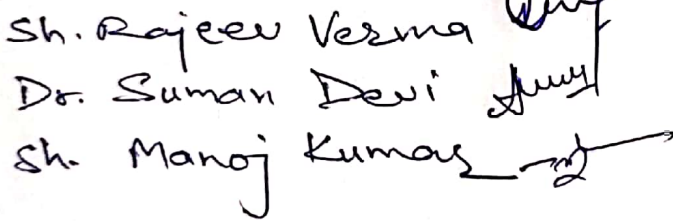 Sh. Rajeev Verma
Dr. Suman Devi
Sh. Manoj Kumar